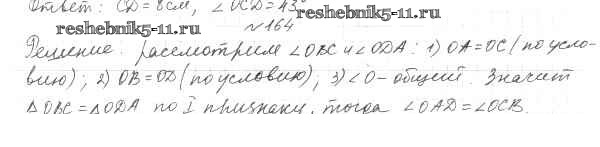 Ответ: CD = 8 см, ∠OCD = 43°
reshebnik5-11.ru
reshebnik5-11.ru
№164
Решение: рассмотрим ∠OBC и ∠ODA: 1) OA=OC (по усло-
вию); 2) OB=OD (по условию); 3) ∠O - общий. Значит
△OBC = △ODA по I признаку, тогда ∠OAD = ∠OCB.